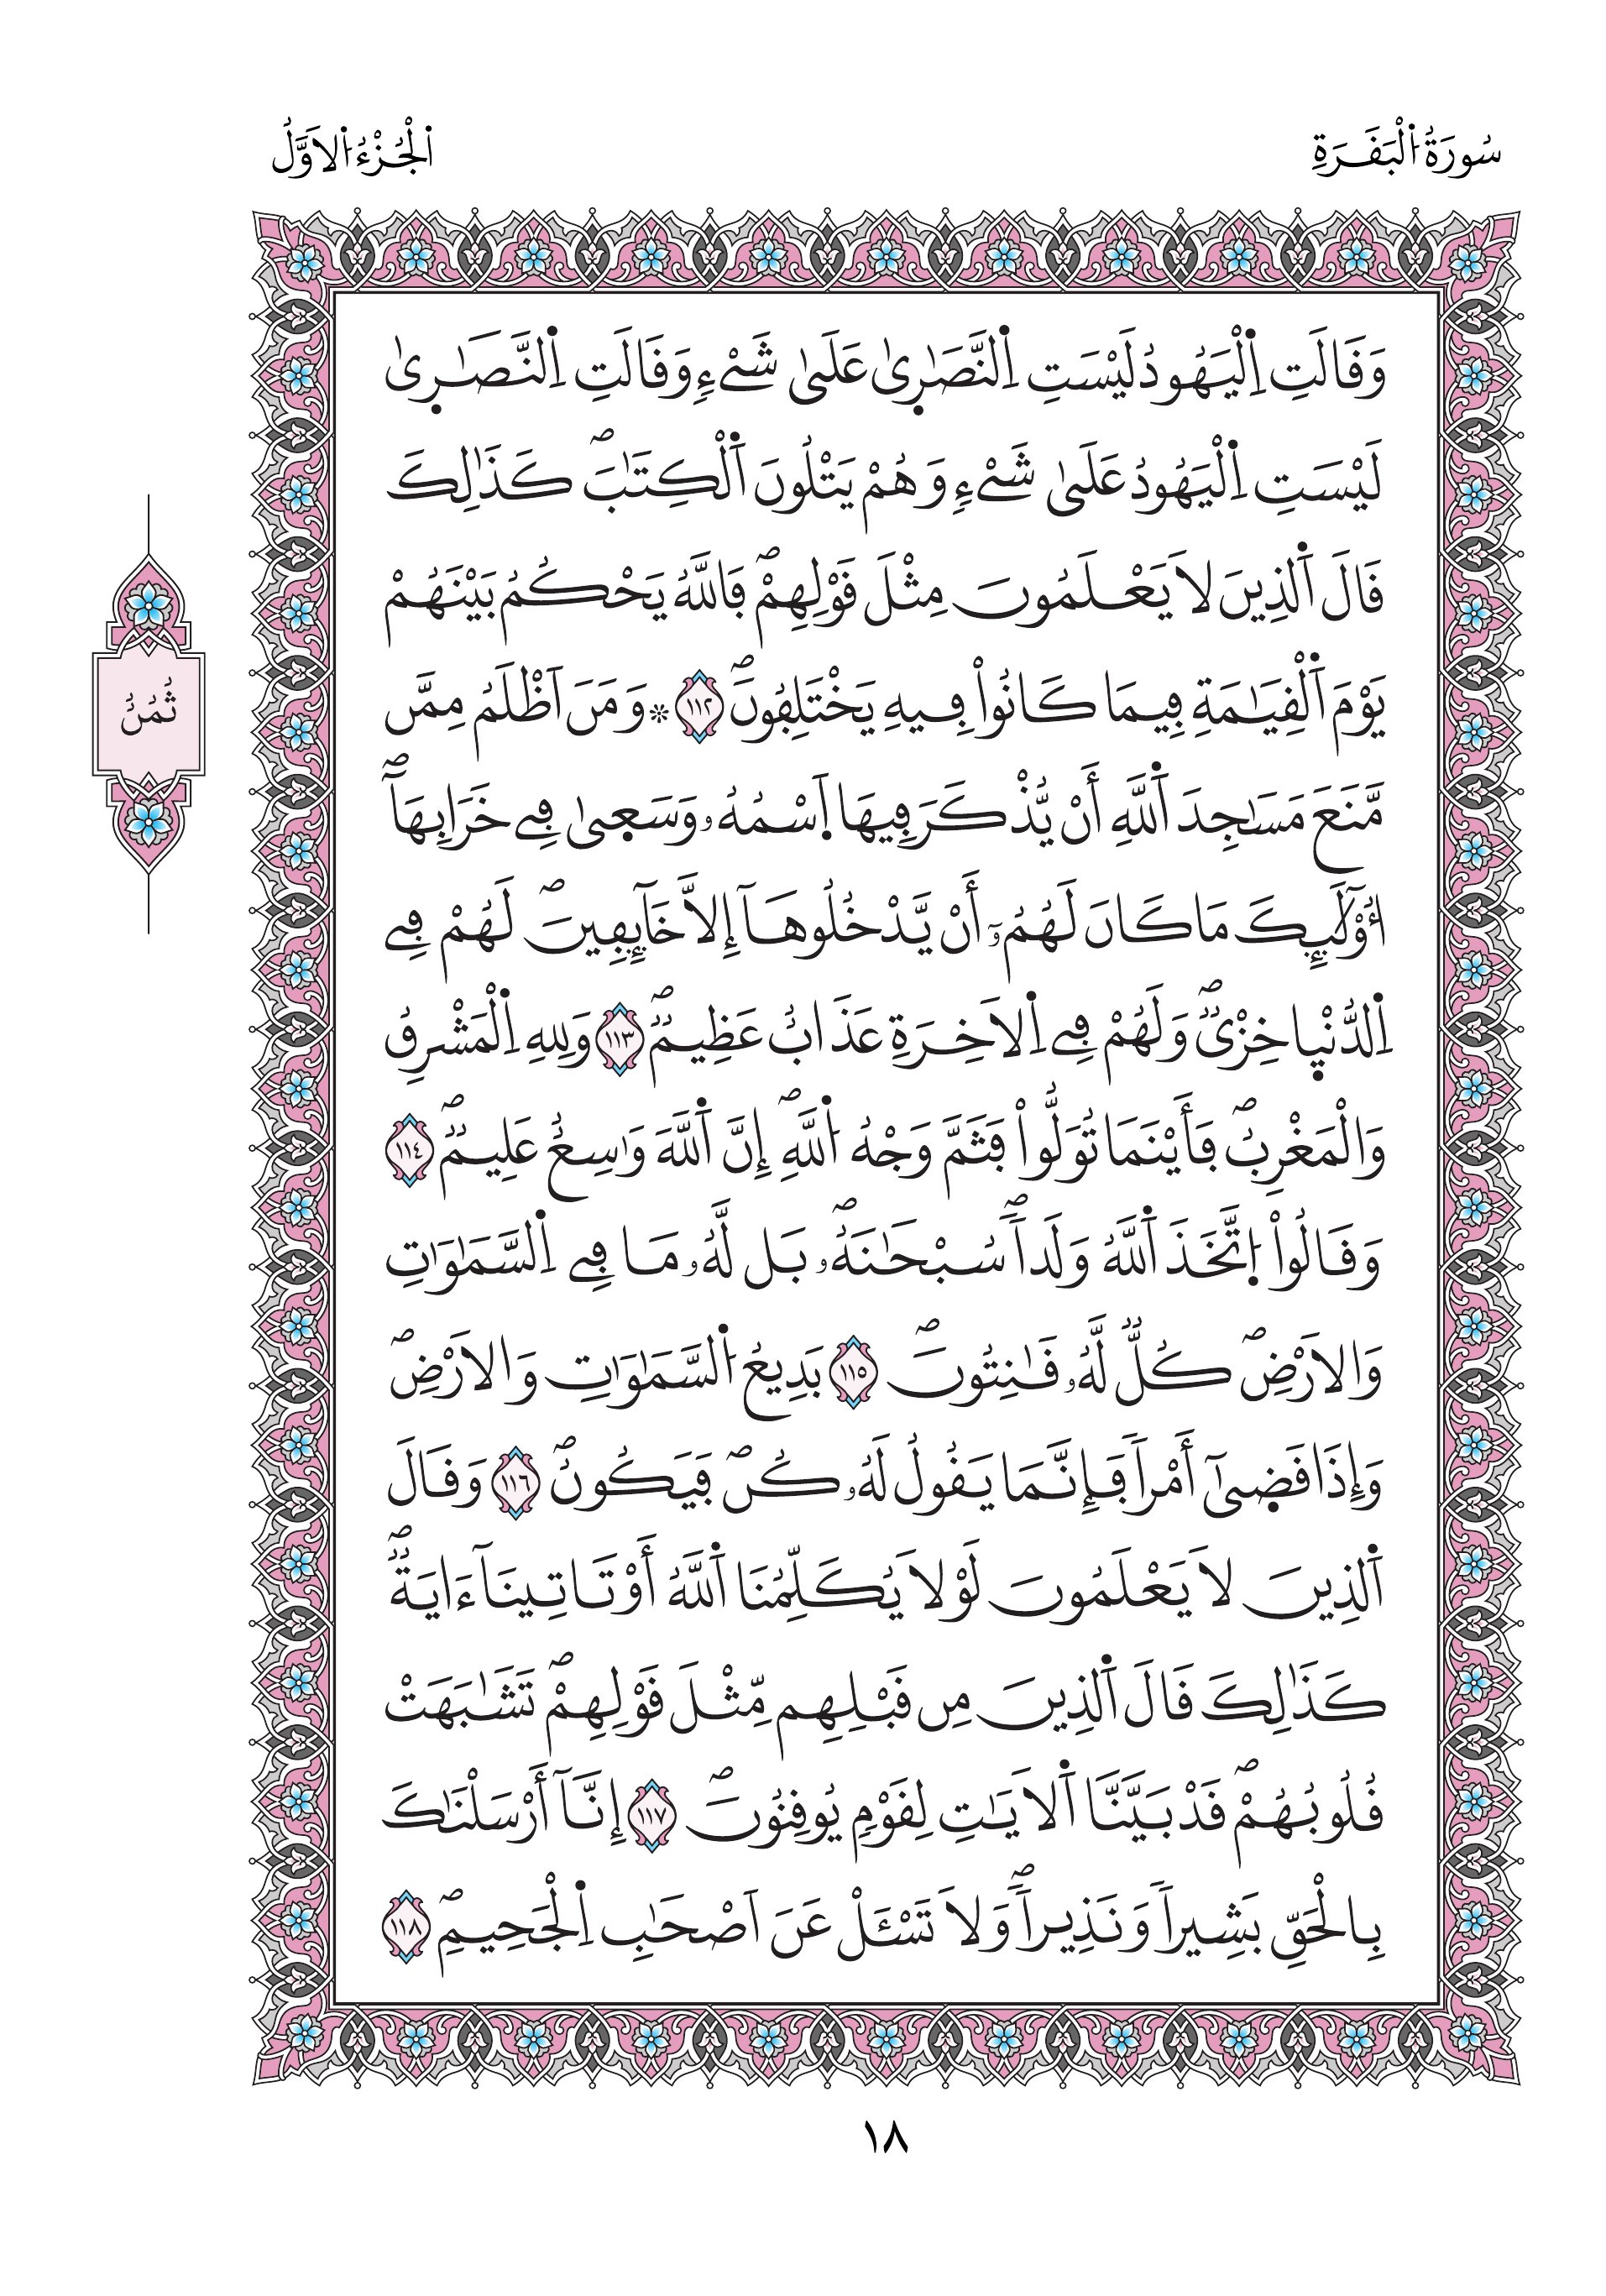 سُورَةُ اُ۬لْبَقَرَةِ
اَ۬لْجُزْءُ اُ۬لَاوَّلُ
وَقَالَتِ اِ۬لْيَهُودُ لَيْسَتِ اِ۬لنَّصَٰر۪يٰ عَلَيٰ شَےْءٖ وَقَالَتِ اِ۬لنَّصَٰر۪يٰ
لَيْسَتِ اِ۬لْيَهُودُ عَلَيٰ شَےْءٖ وَهُمْ يَتْلُونَ اَ۬لْكِتَٰبَۖ كَذَٰلِكَ
قَالَ اَ۬لذِينَ لَا يَعْلَمُونَ مِثْلَ قَوْلِهِمْۖ فَاللَّهُ يَحْكُمُ بَيْنَهُمْ
يَوْمَ اَ۬لْقِيَٰمَةِ فِيمَا كَانُواْ فِيهِ يَخْتَلِفُونَۖ ١١٢ ۞ وَمَنَ اَظْلَمُ مِمَّن
مَّنَعَ مَسَٰجِدَ اَ۬للَّهِ أَنْ يُّذْكَرَ فِيهَا اَ۪سْمُهُۥ وَسَع۪يٰ فِے خَرَابِهَآۖ
أُوْلَٰٓئِكَ مَا كَانَ لَهُمُۥٓ أَنْ يَّدْخُلُوهَآ إِلَّا خَآئِفِينَۖ لَهُمْ فِے
اِ۬لدُّنْي۪ا خِزْيٞۖ وَلَهُمْ فِے اِ۬لَاخِرَةِ عَذَابٌ عَظِيمٞۖ ١١٣ وَلِلهِ اِ۬لْمَشْرِقُ
وَالْمَغْرِبُۖ فَأَيْنَمَا تُوَلُّواْ فَثَمَّ وَجْهُ اُ۬للَّهِۖ إِنَّ اَ۬للَّهَ وَٰسِعٌ عَلِيمٞۖ ١١٤
وَقَالُواْ اُ۪تَّخَذَ اَ۬للَّهُ وَلَداٗۖ سُبْحَٰنَهُۥۖ بَل لَّهُۥ مَا فِے اِ۬لسَّمَٰوَٰتِ
وَالَارْضِۖ كُلّٞ لَّهُۥ قَٰنِتُونَۖ ١١٥ بَدِيعُ اُ۬لسَّمَٰوَٰتِ وَالَارْضِۖ
وَإِذَا قَض۪يٰٓ أَمْراٗ فَإِنَّمَا يَقُولُ لَهُۥ كُنۖ فَيَكُونُۖ ١١٦ وَقَالَ
اَ۬لذِينَ لَا يَعْلَمُونَ لَوْلَا يُكَلِّمُنَا اَ۬للَّهُ أَوْ تَاتِينَآ ءَايَةٞۖ
كَذَٰلِكَ قَالَ اَ۬لذِينَ مِن قَبْلِهِم مِّثْلَ قَوْلِهِمْۖ تَشَٰبَهَتْ
قُلُوبُهُمْۖ قَدْ بَيَّنَّا اَ۬لَايَٰتِ لِقَوْمٖ يُوقِنُونَۖ ١١٧ إِنَّآ أَرْسَلْنَٰكَ
بِالْحَقِّ بَشِيراٗ وَنَذِيراٗۖ وَلَا تَسْـَٔلْ عَنَ اَصْحَٰبِ اِ۬لْجَحِيمِۖ ١١٨
ثُمُنُ
١٨